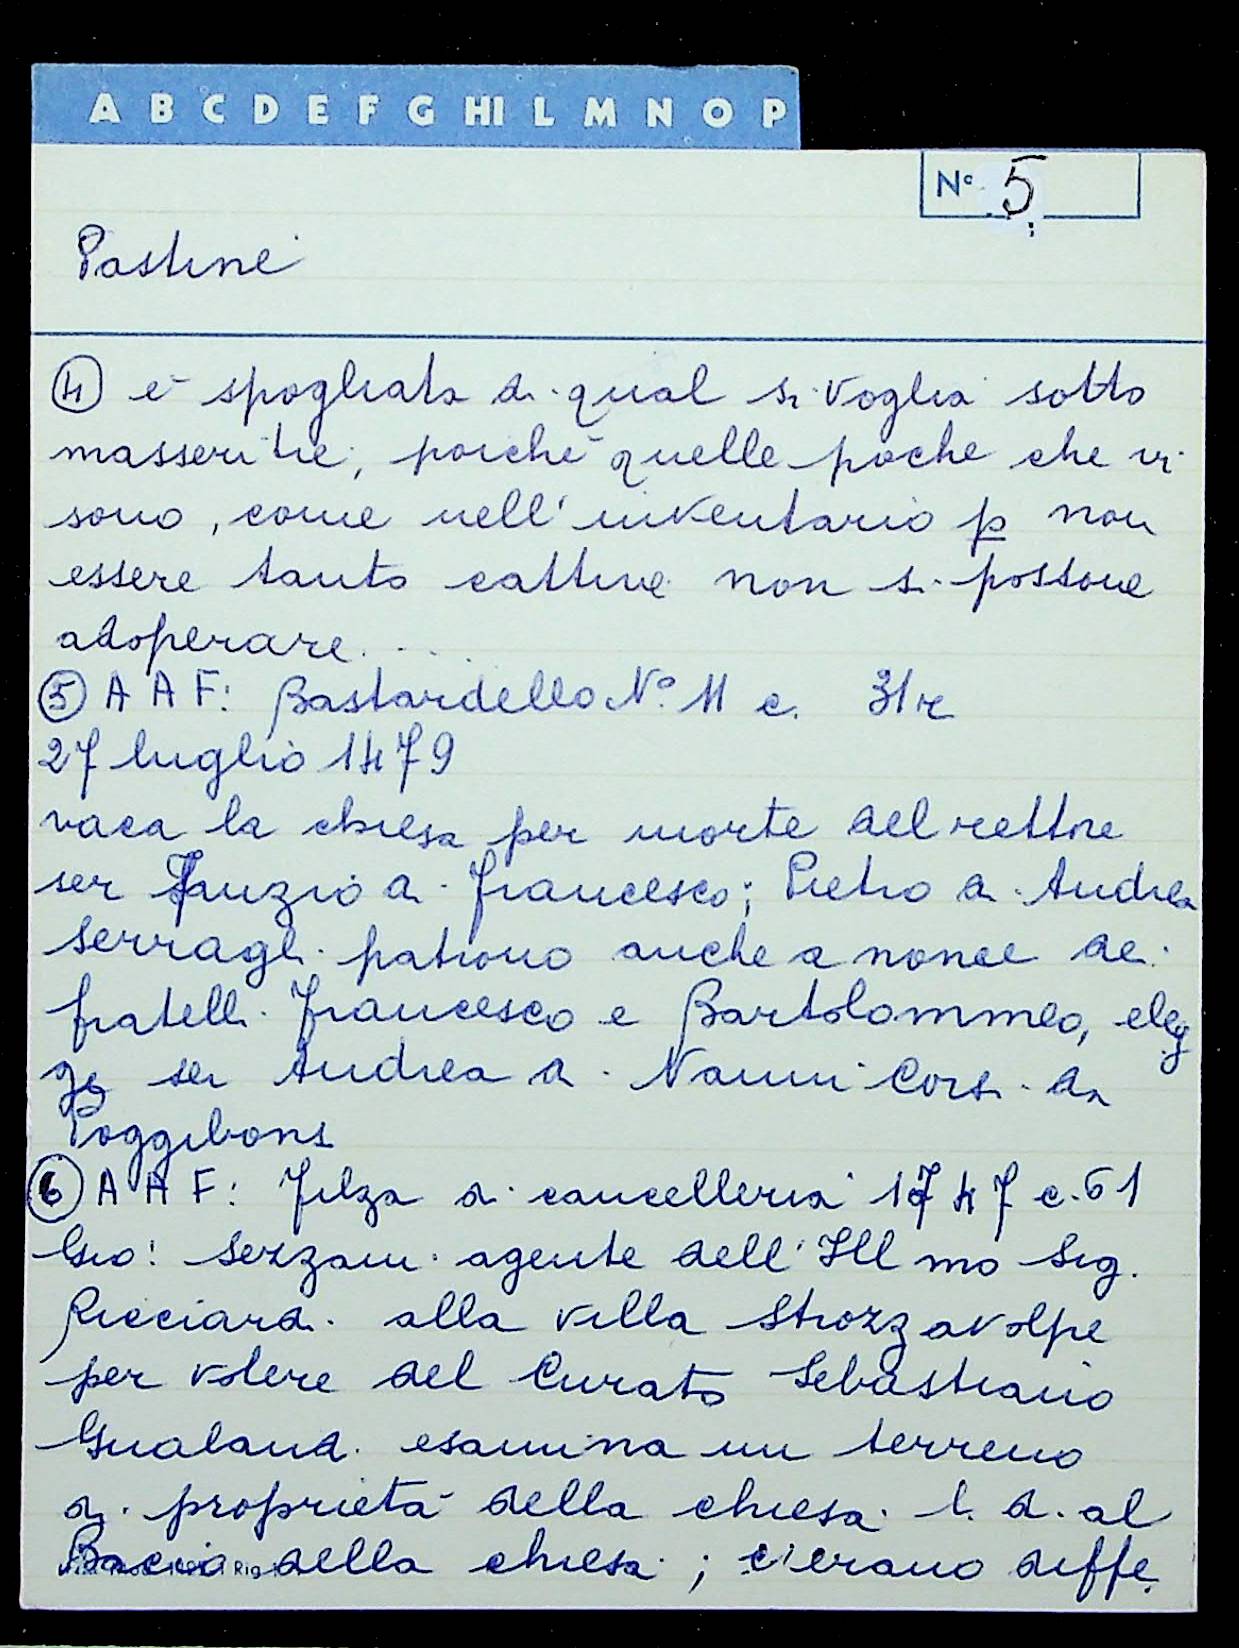 A B C D E F G HI L M N O P
N° 5
Pastine
④ e spogliata di qual si voglia sotto
masseritie, poiché quelle poche che vi
sono, come nell'inventario p non
essere tanto cattive non si possone
adoperare....
⑤ A A F: Bastardello N° 11 c. 31r
27 luglio 1479
vaca la chiesa per morte del rettore
ser Francesco; Pietro di Andrea
Serragli patrono anche a nome dei
fratelli Francesco e Bartolommeo, eleg
ge ser Andrea di Nanni Corsi da
Poggibonsi
⑥ A A F: Filza di cancelleria 1747 c. 61
Gio: Sezzani agente dell'Ill mo Sig.
Ricciardi alla villa Strozzavolpe
per volere del Curato Sebastiano
Gualandi esamina un terreno
di proprietà della chiesa l. d. al
Bacio della chiesa; c'erano diffe